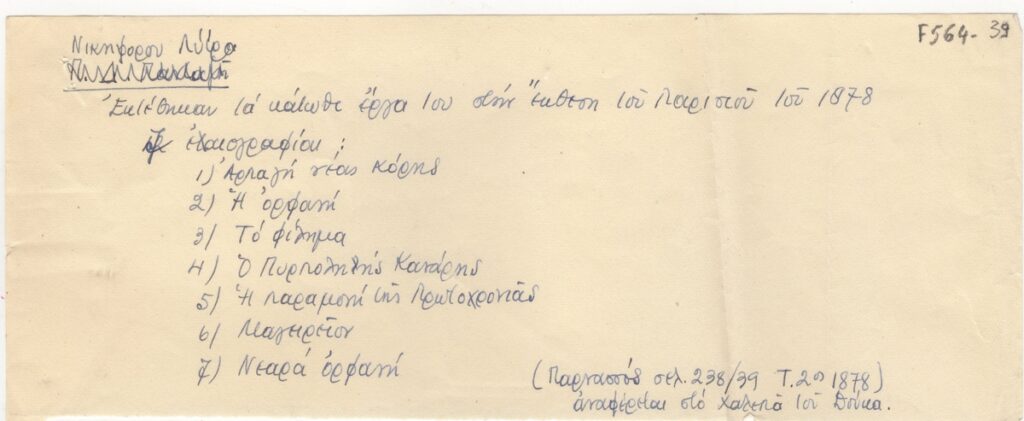 F564-39
Νικηφόρου Λύτρα
Ἐκτέθηκαν τά κάτωθι ἔργα του στήν Ἔκθεση τοῦ Παρισιοῦ τοῦ 1878
ἐλαιογραφίαι :
1) Ἁρπαγή νέας κόρης
2) Ἡ ὀρφανή
3) Τό φίλημα
4) Ὁ Πυρπολητής Κανάρης
5) Ἡ παραμονή τῆς Πρωτοχρονιᾶς
6) Μαγειρεῖον
7) Νεαρά ὀρφανή
(Παρνασσός σελ. 238/39 Τ. 2ος 1878)
ἀναφέρεται στό τοῦ Δούκα.